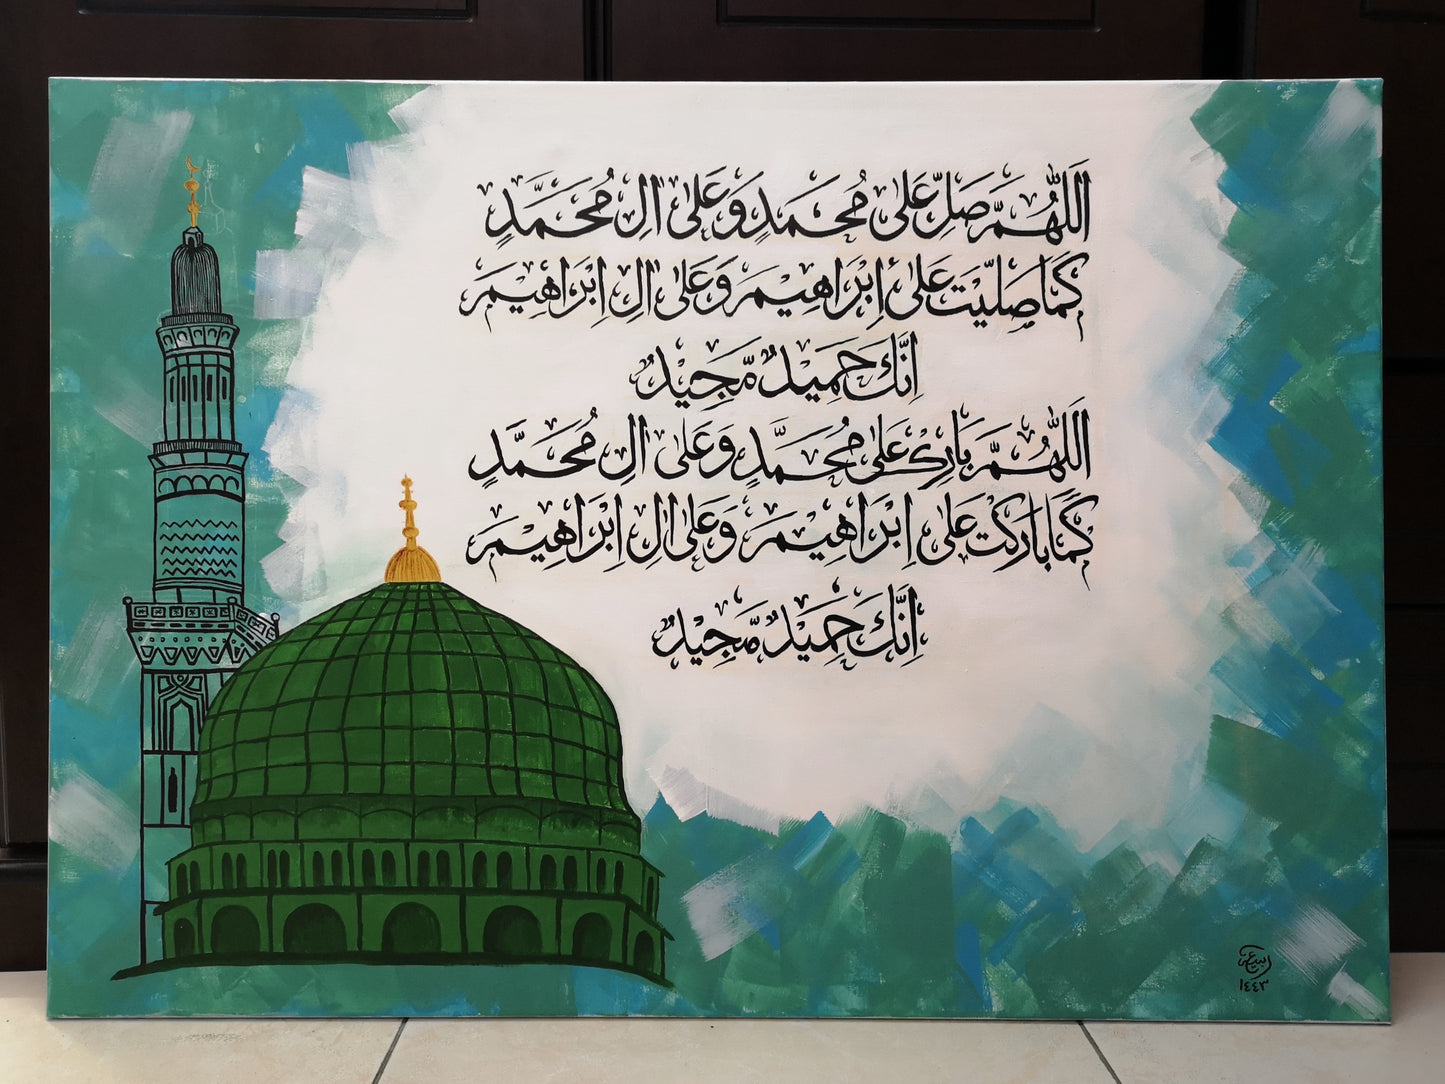 اَللّٰهُمَّ صَلِّ عَلٰى مُحَمَّدٍ وَعَلٰى اٰلِ مُحَمَّدٍ
كَمَا صَلَّيْتَ عَلٰى اِبْرَاهِيْمَ وَعَلٰى اٰلِ اِبْرَاهِيْمَ
اِنَّكَ حَمِيْدٌ مَّجِيْدٌ
اَللّٰهُمَّ بَارِكْ عَلٰى مُحَمَّدٍ وَعَلٰى اٰلِ مُحَمَّدٍ
كَمَا بَارَكْتَ عَلٰى اِبْرَاهِيْمَ وَعَلٰى اٰلِ اِبْرَاهِيْمَ
اِنَّكَ حَمِيْدٌ مَّجِيْدٌ
١٤٤٣